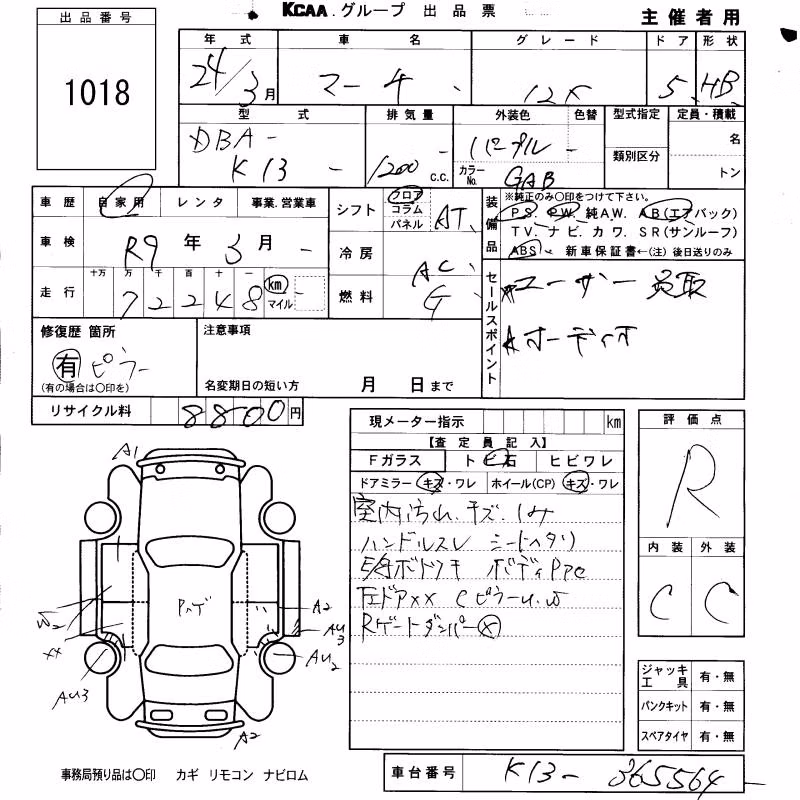 KCAA.グループ 出品票
主催者用
出品番号
1018
年式 車名 グレード ドア 形状
24/3月 マーチ 12X 5 HB
型式 排気量 外装色 色替 型式指定 定員・積載
DBA-
K13 1200 c.c. パープル
カラーNo. GAB
類別区分
名
トン
車歴 自家用 レンタ 事業.営業車
車検 R9年3月
走行 十万 万 千 百 十 一
72248 km マイル
シフト フロア コラム パネル AT
冷房 AC
燃料 G
装備品
※純正のみ〇印をつけて下さい。
PS. PW. 純AW. AB(エアバック)
TV. ナビ. カワ. SR(サンルーフ)
ABS 新車保証書←(注) 後日送りのみ
セールスポイント
ユーザー買取
オーディオ
修復歴 箇所
有 ピラー
(有の場合は〇印を)
注意事項
名変期日の短い方 月 日まで
リサイクル料 8800円
現メーター指示 km
【査定員記入】
Fガラス トビ石 ヒビワレ
ドアミラー キズ・ワレ ホイール(CP) キズ・ワレ
室内汚れ.キズ.
ハンドルスレ シートヘタリ
左ドアXX Cピラー
RゲートダンパーⓍ
評価点
R
内装 外装
C C
A1
W2
XX
AU3
A2
AU3
AU2
A2
ジャッキ工具 有・無
パンクキット 有・無
スペアタイヤ 有・無
事務局預り品は〇印 カギ リモコン ナビロム
車台番号 K13-365564